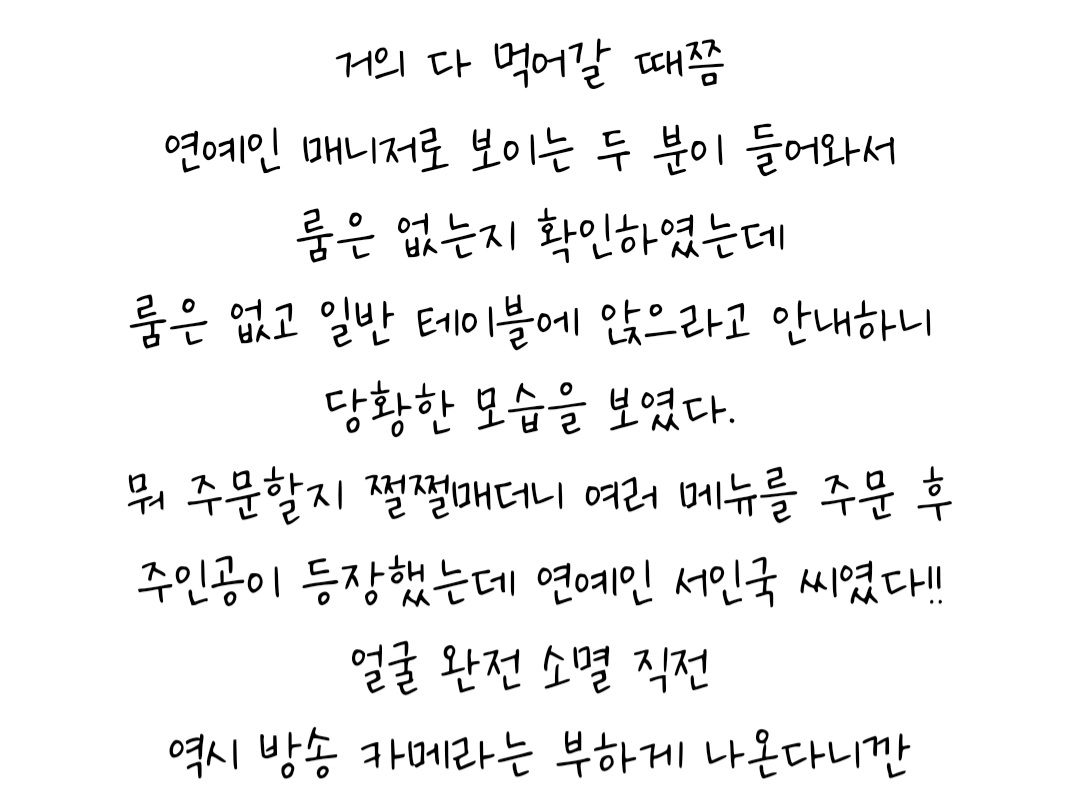 거의 다 먹어갈 때쯤
연예인 매니저로 보이는 두 분이 들어와서
룸은 없는지 확인하였는데
룸은 없고 일반 테이블에 앉으라고 안내하니
당황한 모습을 보였다.
뭐 주문할지 쩔쩔매더니 여러 메뉴를 주문 후
주인공이 등장했는데 연예인 서인국 씨였다!!
얼굴 완전 소멸 직전
역시 방송 카메라는 부하게 나온다니깐